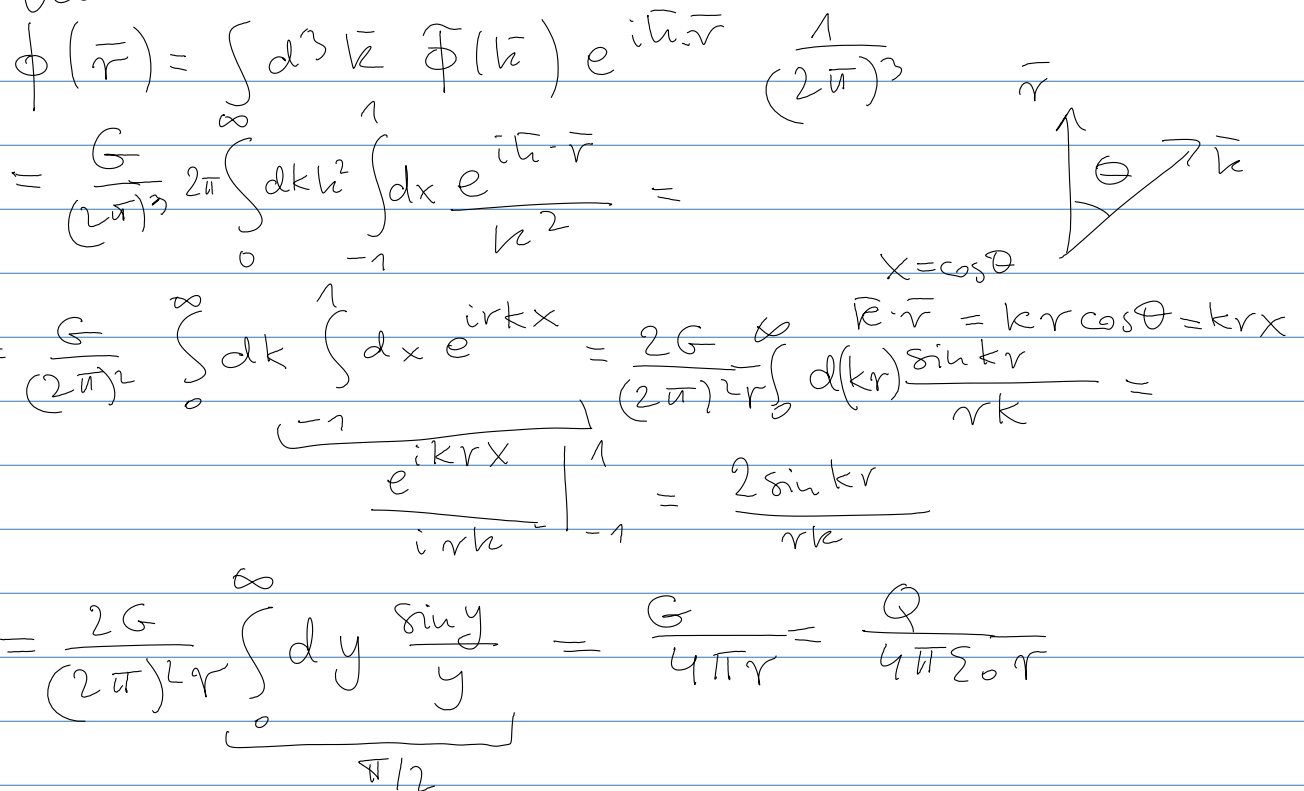 ϕ(r̄) = ∫ d³k̄ ϕ̃(k̄) e^{ik̄·r̄} 1/(2π)³
r̄
k̄
θ
= G/(2π)³ 2π ∫_0^∞ dk k² ∫_{-1}^1 dx e^{ik̄·r̄}/k² =
x = cosθ
k̄·r̄ = kr cosθ = krx
= G/(2π)² ∫_0^∞ dk ∫_{-1}^1 dx e^{irkx} = 2G/((2π)² r) ∫_0^∞ d(kr) sin kr/rk =
e^{ikrx}/irk |_{-1}^1 = 2 sin kr/rk
= 2G/((2π)² r) ∫_0^∞ dy sin y/y = G/4πr = Q/4πε₀r
π/2